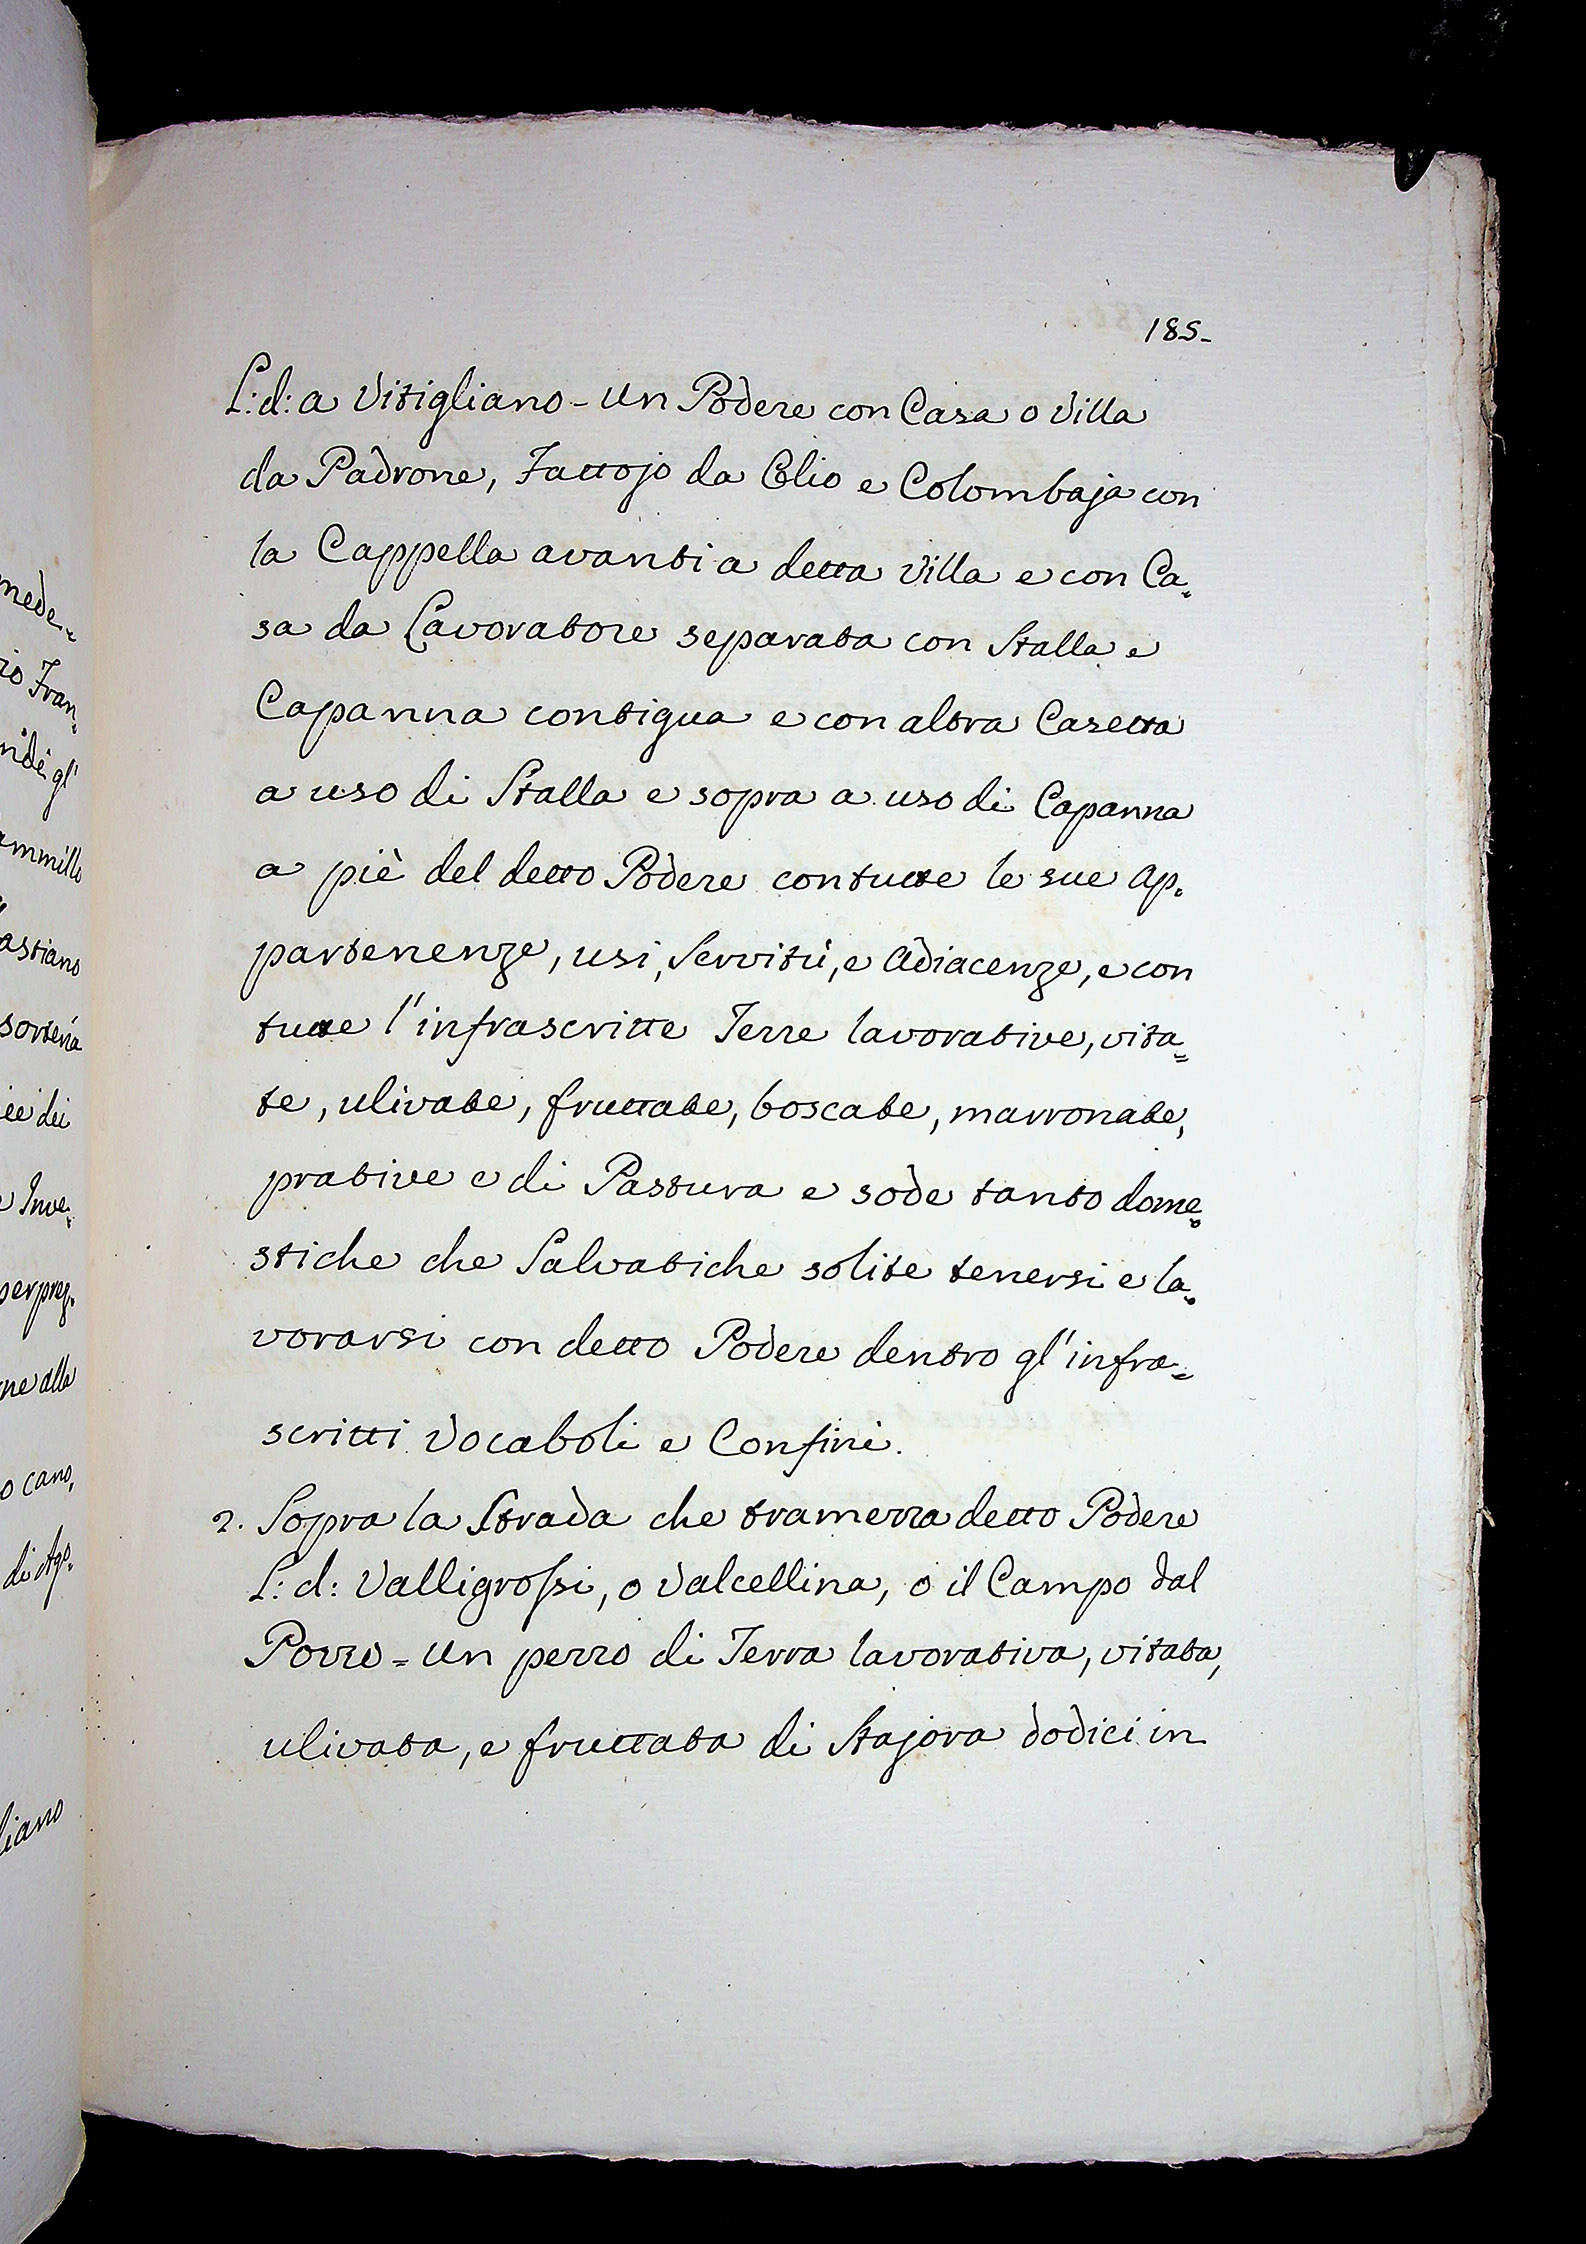 185.
L: d: a Vitigliano - un Podere con Casa o Villa
da Padrone, Fattojo da Olio e Colombaja con
la Cappella avanti a detta Villa e con Ca-
sa da Lavoratore separata con Stalla e
Capanna contigua e con altra Casetta
a uso di Stalla e sopra a uso di Capanna
a piè del detto Podere con tutte le sue ap-
partenenze, usi, Servitù, e adiacenze, e con
tutte l'infrascritte Terre lavorative, vita=
te, ulivate, fruttate, boscate, marronate,
prative e di Pastura e sode tanto dome-
stiche che Salvatiche solite tenersi e la-
vorarsi con detto Podere dentro gl'infra=
scritti Vocaboli e Confini.
2. Sopra la Strada che tramezza detto Podere
L: d: Valligrossi, o Valcellina, o il Campo dal
Pozzo = un pezzo di Terra lavorativa, vitata,
ulivata, e fruttata di Stajora dodici in
mede=
io Fran-
ndi gl'
ammillo
astiano
sorteria
ee dei
Inve-
per preg.
ne alla
o cano,
di Ago-
liano